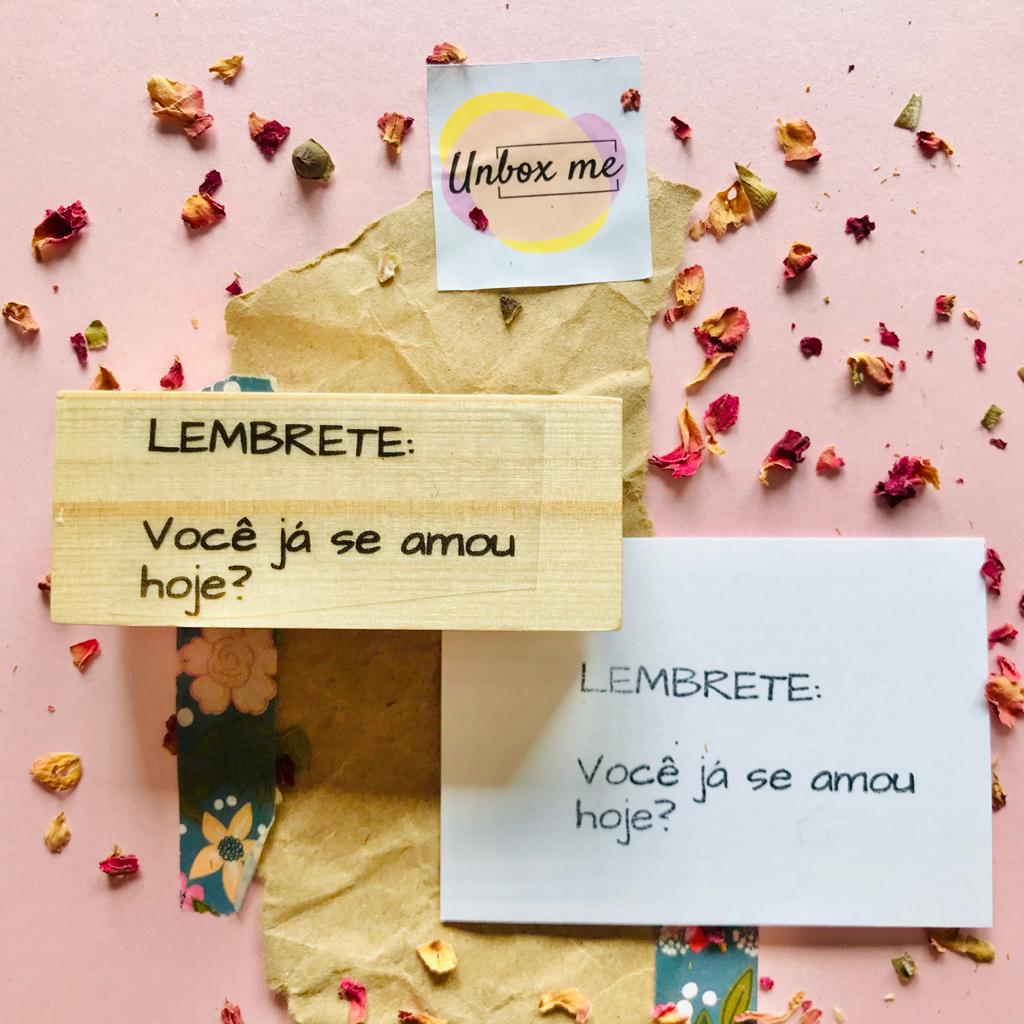 Unbox me
LEMBRETE:
Você já se amou
hoje?
LEMBRETE:
Você já se amou
hoje?